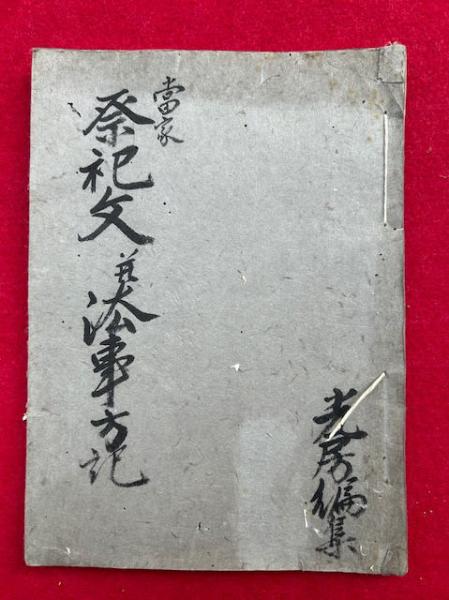 當家
祭祀文並法事方記
光房編集